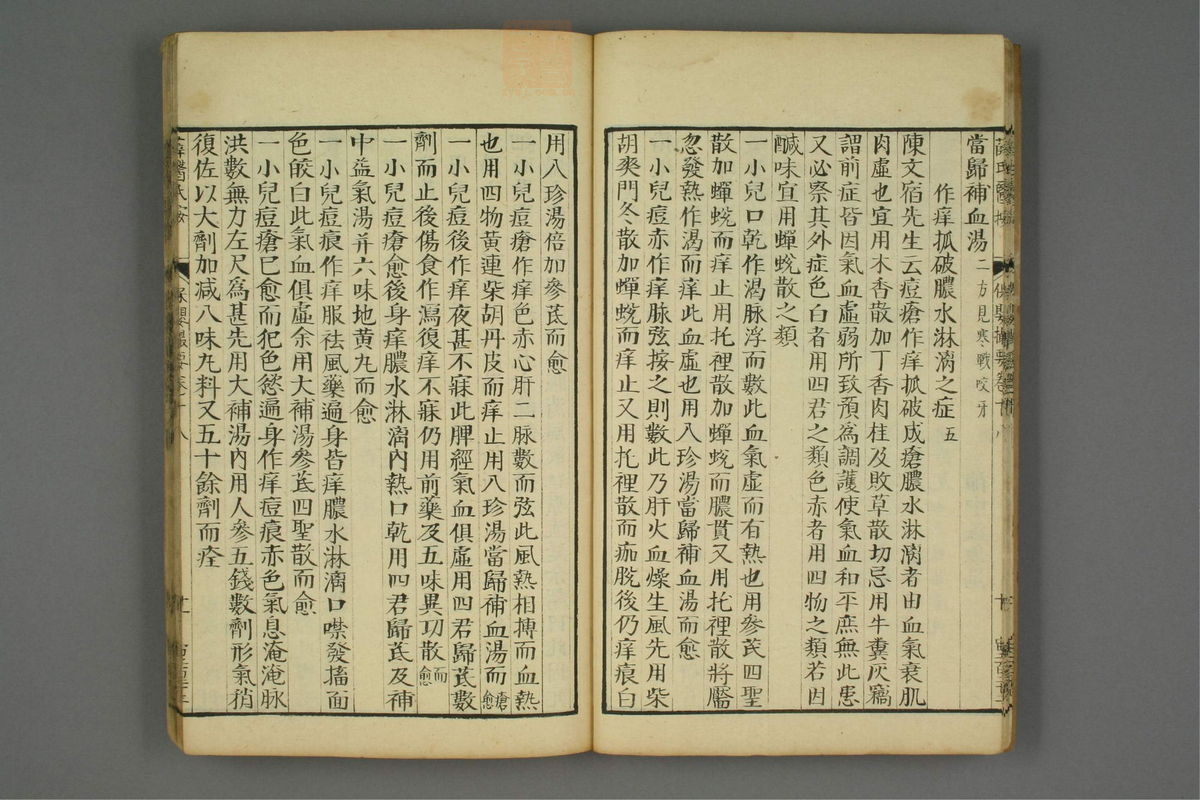 當歸補血湯二方見寒戰咬牙
作痒抓破膿水淋漓之症五
陳文宿先生云痘瘡作痒抓破成瘡膿水淋漓者由血氣衰肌
肉虛也宜用木香散加丁香肉桂及敗草散切忌用牛糞灰竊
謂前症皆因氣血虛弱所致預爲調護使氣血和平庶無此患
又必察其外症色白者用四君之類色赤者用四物之類若因
醎味宜用蟬蛻散之類
一小兒口乾作渴脉浮而數此血氣虛而有熱也用參芪四聖
散加蟬蛻而痒止用托裡散加蟬蛻而膿貫又用托裡散將靨
忽發熱作渴而痒此血虛也用八珍湯當歸補血湯而愈
一小兒痘赤作痒脉弦按之則數此乃肝火血燥生風先用柴
胡麥門冬散加蟬蛻而痒止又用托裡散而痂脫後仍痒痕白
用八珍湯倍加參芪而愈
一小兒痘瘡作痒色赤心肝二脉數而弦此風熱相搏而血熱
也用四物黃連柴胡丹皮而痒止用八珍湯當歸補血湯而瘡愈
一小兒痘後作痒夜甚不寐此脾經氣血俱虛用四君歸芪數
劑而止後傷食作瀉復痒不寐仍用前藥及五味異功散而愈
一小兒痘瘡愈後身痒膿水淋漓內熱口乾用四君歸芪及補
中益氣湯并六味地黃丸而愈
一小兒痘痕作痒服祛風藥遍身皆痒膿水淋漓口噤發搐面
色皎白此氣血俱虛余用大補湯參芪四聖散而愈
一小兒痘瘡已愈而犯色慾遍身作痒痘痕赤色氣息淹淹脉
洪數無力左尺爲甚先用大補湯內用人參五錢數劑形氣稍
復佐以大劑加减八味丸料又五十餘劑而痊